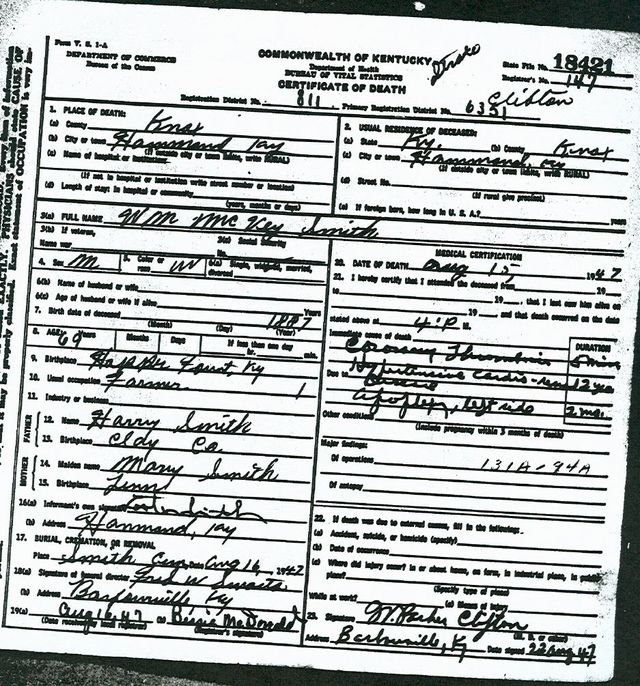 Form V. S. 1-A
DEPARTMENT OF COMMERCE
Bureau of the Census
COMMONWEALTH OF KENTUCKY
Department of Health
BUREAU OF VITAL STATISTICS
CERTIFICATE OF DEATH
State File No. 18421
Registrar's No. 147
Clifton
Registration District No. 811 Primary Registration District No. 6351
1. PLACE OF DEATH:
(a) County Knox
(b) City or town Hammond Ky
(If outside city or town limits, write RURAL)
(c) Name of hospital or institution:
(If not in hospital or institution write street number or location)
(d) Length of stay: In hospital or community
(years, months or days)
2. USUAL RESIDENCE OF DECEASED:
(a) State Ky. (b) County Knox
(c) City or town Hammond, Ky
(If outside city or town limits, write RURAL)
(d) Street No.
(If rural give precinct)
(e) If foreign born, how long in U. S. A.? years
3(a) FULL NAME Wm Mc Key Smith
3(b) If veteran,
Name war
3(c) Social Security
No.
4. Sex M 5. Color or race W 6(a) Single, widowed, married, divorced
6(b) Name of husband or wife
6(c) Age of husband or wife if alive Years
7. Birth date of deceased 1887
(Month) (Day) (Year)
8. AGE: Years 69 Months Days If less than one day hr. min.
9. Birthplace Ky
10. Usual occupation Farmer
11. Industry or business
FATHER
12. Name Harry Smith
13. Birthplace Clay Co.
MOTHER
14. Maiden name Mary Smith
15. Birthplace Tenn
16(a) Informant's own signature
(b) Address Hammond, Ky
17. BURIAL, CREMATION, OR REMOVAL
Place Smith Cem Date Aug 16, 1947
18(a) Signature of funeral director
(b) Address Barbourville Ky
19(a) Aug 16 47 (b) Bessie McDonald
(Date received by local registrar) (Registrar's signature)
MEDICAL CERTIFICATION
20. DATE OF DEATH Aug 15 1947
21. I hereby certify that I attended the deceased from
19 , to 19 , that I last saw him alive on
19 , and that death occurred on the date
stated above at 4:P M.
Immediate cause of death
DURATION
Coronary Thrombosis 5 min
Due to Hypertensive cardio-renal 12 yrs
Disease
apoplexy, left side 2 mo.
Other conditions
(Include pregnancy within 3 months of death)
Major findings:
Of operations 131A-94A
Of autopsy
22. If death was due to external causes, fill in the following:
(a) Accident, suicide, or homicide (specify)
(b) Date of occurrence
(c) Where did injury occur? in or about home, on farm, in industrial place, in public place?
(Specify type of place)
While at work? (e) Means of injury
23. Signature W. Parker Clifton
(M. D. or other)
Address Barbourville, Ky Date signed 22 Aug 47